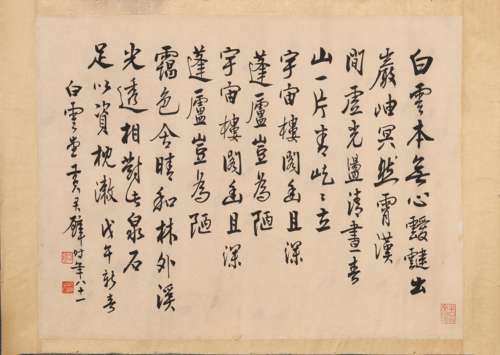 白雲本無心靉靆出
巖岫冥然霄漢
間虛光盪清晝春
山一片青屹々立
宇宙樓閣幽且深
蓬廬豈為陋
宇宙樓閣幽且深
蓬廬豈為陋
靄色含晴和林外溪
光透相對坐泉石
足以資枕漱 戊午新春
白雲堂黃君璧時年八十一